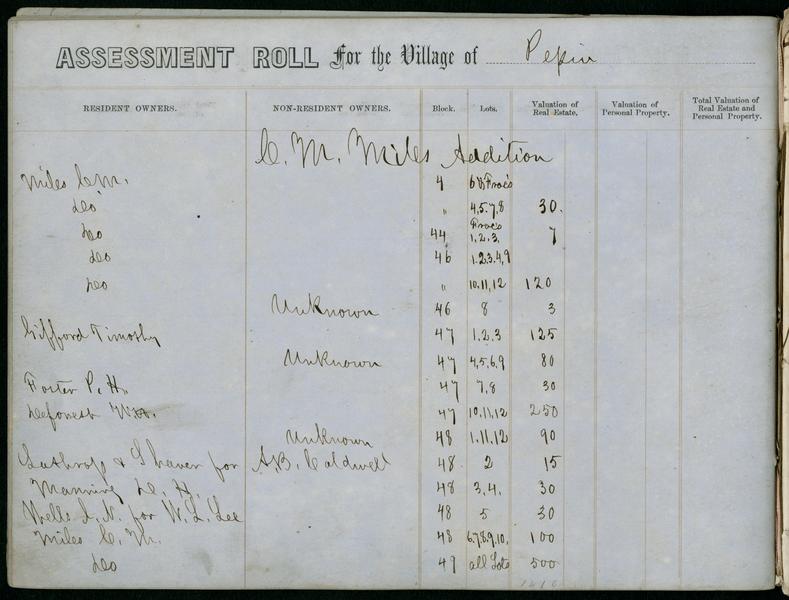 ASSESSMENT ROLL For the Village of Pepin
RESIDENT OWNERS. NON-RESIDENT OWNERS. Block. Lots. Valuation of Real Estate. Valuation of Personal Property. Total Valuation of Real Estate and Personal Property.
C. M. Miles Addition
Miles C.M. 4 6 8 Frac's
Do " 4,5,7,8 30.
Do 44 Frac's 1,2,3, 7
Do 46 1,2,3,4,9
Do " 10,11,12 120
Unknown 46 8 3
Gifford Timothy 47 1,2,3 125
Unknown 47 4,5,6,9 80
Foster P. H. 47 7,8 30
Deforest Wm. 47 10,11,12 250
Unknown 48 1,11,12 90
Lathrop & Shaver for A.B. Caldwell 48 2 15
Manning D. H. 48 3,4. 30
Wells I. N. for W. L. Lee 48 5 30
Miles C. M. 48 6,7,8,9,10, 100
Do 49 all Lots 500